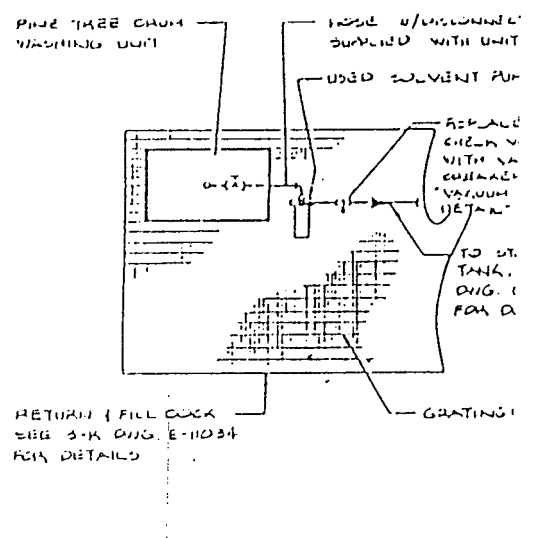 PINE TREE DRUM
WASHING UNIT
HOSE W/DISCONNECT
SUPPLIED WITH UNIT
USED SOLVENT PUM
REPLACE
CHECK V
WITH VA
"VACUUM
DETAIL"
TO ST
TANK,
DWG.
FOR D
GRATING
RETURN & FILL DOCK
SEE S-K DWG. E-11034
FOR DETAILS